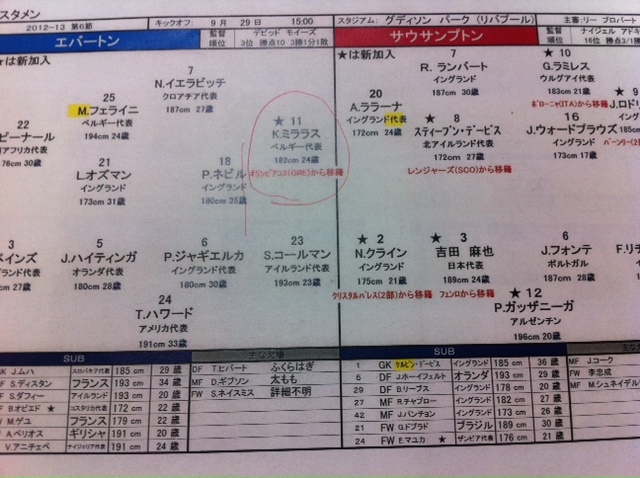 スタメン
2012-13 第6節
キックオフ: 9月 29日 15:00
スタジアム: グディソン パーク (リバプール)
主審:リー プロバート
エバートン
監督 デビッド モイーズ
順位 3位 勝点10 3勝1分1敗
サウサンプトン
監督 ナイジェル アドキ
順位 16位 勝点3/1勝
★は新加入
7
N.イエラビッチ
クロアチア代表
187cm 27歳
25
M.フェライニ
ベルギー代表
194cm 24歳
★ 11
K.ミララス
ベルギー代表
182cm 24歳
オリンピアコス(GRE)から移籍
22
ピーナール
南アフリカ代表
176cm 30歳
21
L.オズマン
イングランド
173cm 31歳
18
P.ネビル
イングランド
180cm 35歳
3
ベインズ
ランド代表
28歳
5
J.ハイティンガ
オランダ代表
180cm 28歳
6
P.ジャギエルカ
イングランド代表
180cm 30歳
23
S.コールマン
アイルランド代表
193cm 23歳
24
T.ハワード
アメリカ代表
191cm 33歳
★は新加入
7
R. ランバート
イングランド
187cm 30歳
★ 10
G.ラミレス
ウルグアイ代表
183cm 21歳
ボローニャ(ITA)から移籍
20
A.ララーナ
イングランド代表
172cm 24歳
★ 8
スティーブン・デービス
北アイルランド代表
172cm 27歳
レンジャーズ(SCO)から移籍
16
J.ウォードプラウズ
イングランド
173cm 17歳
★ 9
J.ロド
イング
185cm
バーンリー(2部
★ 2
N.クライン
イングランド
175cm 21歳
クリスタルパレス(2部)から移籍
★ 3
吉田 麻也
日本代表
189cm 24歳
フェンロから移籍
6
J.フォンテ
ポルトガル
187cm 28歳
F.リチ
イング
180cm
★ 12
P.ガッザニーガ
アルゼンチン
196cm 20歳
SUB
主な欠場
GK J.ムハ スロバキア代表 185 cm 29 歳
DF S.ディスタン フランス 193 cm 34 歳
DF S.ダフィー アイルランド 193 cm 20 歳
B.オビエド ★ コスタリカ代表 172 cm 22 歳
M.ゲユ フランス 179 cm 22 歳
A.ベリオス ギリシャ 191 cm 20 歳
V.アニチェベ ナイジェリア代表 191 cm 24 歳
DF T.ヒバート ふくらはぎ
MF D.ギブソン 太もも
FW S.ネイスミス 詳細不明
SUB
主な欠場
1 GK ケルビン・デービス イングランド 185 cm 36 歳
5 DF J.ホーイフェルト オランダ 193 cm 29 歳
29 DF B.リーブス イングランド 178 cm 20 歳
27 MF R.チャプロー イングランド 182 cm 27 歳
42 MF J.パンチョン イングランド 173 cm 26 歳
21 FW G.ドプラド ブラジル 189 cm 30 歳
24 FW E.マユカ ★ ザンビア代表 176 cm 21 歳
MF J.コーク
FW 李忠成
MF M.シュネイデル